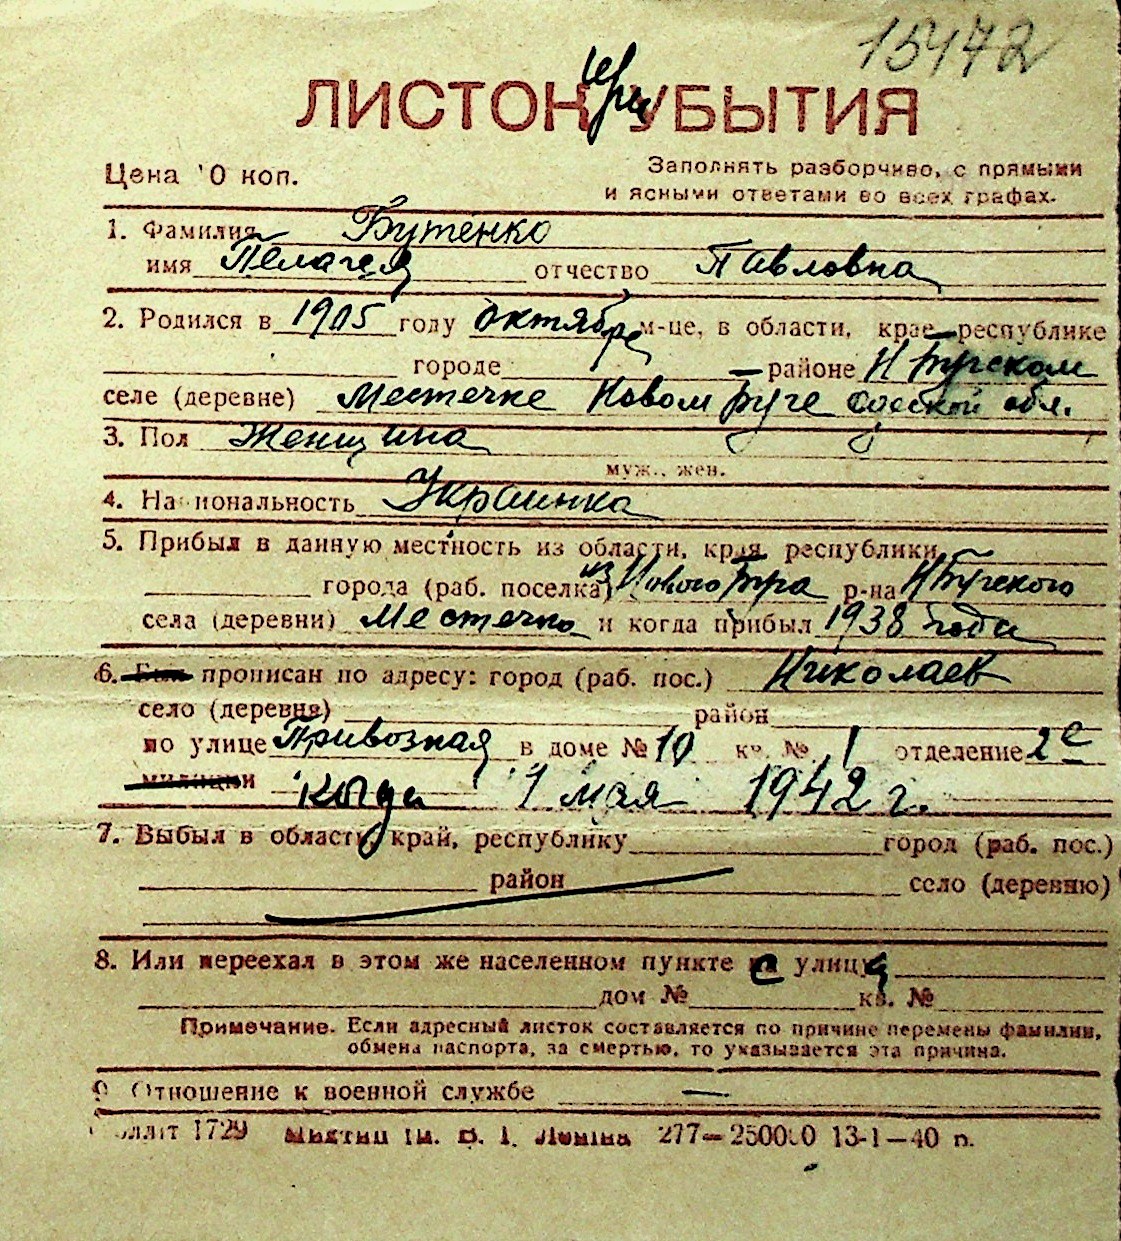 15472
ЛИСТОК при УБЫТИЯ
Цена 10 коп.
Заполнять разборчиво, с прямыми
и ясными ответами во всех графах.
1. Фамилия Бутенко
имя Пелагея отчество Павловна
2. Родился в 1905 году октября м-це, в области, крае республике
городе районе Н Бугском
селе (деревне) Местечке Новом Буге Одеской обл.
3. Пол Женщина
муж., жен.
4. Национальность Украинка
5. Прибыл в данную местность из области, края, республики
города (раб. поселка) из Нового Буга р-на Н Бугского
села (деревни) Местечко и когда прибыл 1938 года
6. Был прописан по адресу: город (раб. пос.) Николаев
село (деревня) район
по улице Привозная в доме № 10 кв. № 1 отделение 2е
милиции когда 1 мая 1942 г.
7. Выбыл в область, край, республику город (раб. пос.)
район село (деревню)
8. Или переехал в этом же населенном пункте с улицы
дом № кв. №
Примечание. Если адресный листок составляется по причине перемены фамилии,
обмена паспорта, за смертью, то указывается эта причина.
9. Отношение к военной службе —
1729 им. В. И. Ленина 277—250000 13-1—40 п.